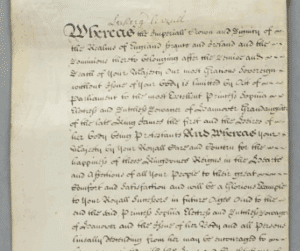 Whereas the Imperiall Crown and Dignity of
the Realms of England France and Ireland and the
Dominions thereto belonging after the Demise and
Death of Your Majesty our most Gracious Sovereign
without Issue of Your Body is limited by Act of
Parliament to the most Excellent Princess Sophia
Electress and Dutchess Dowager of Hannover Granddaughter
of the late King James the first and the Heires of
her body being Protestants And Whereas Your
Majesty by Your Royall Care and Concern for the
happiness of these Kingdomes Reigns in the Hearts
and Affections of all Your People to their great
Comfort and Satisfaction and will be a Glorious Example
to Your Royall Successors in future Ages And to the
end the said Princess Sophia Electress and Dutchess Dowager
of Hannover and the Issue of her Body and all Persons
lineally descending from her may be encouraged to